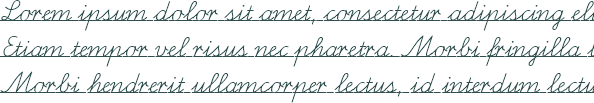 Lorem ipsum dolor sit amet, consectetur adipiscing eli
Etiam tempor vel risus nec pharetra. Morbi fringilla
Morbi hendrerit ullamcorper lectus, id interdum lectu